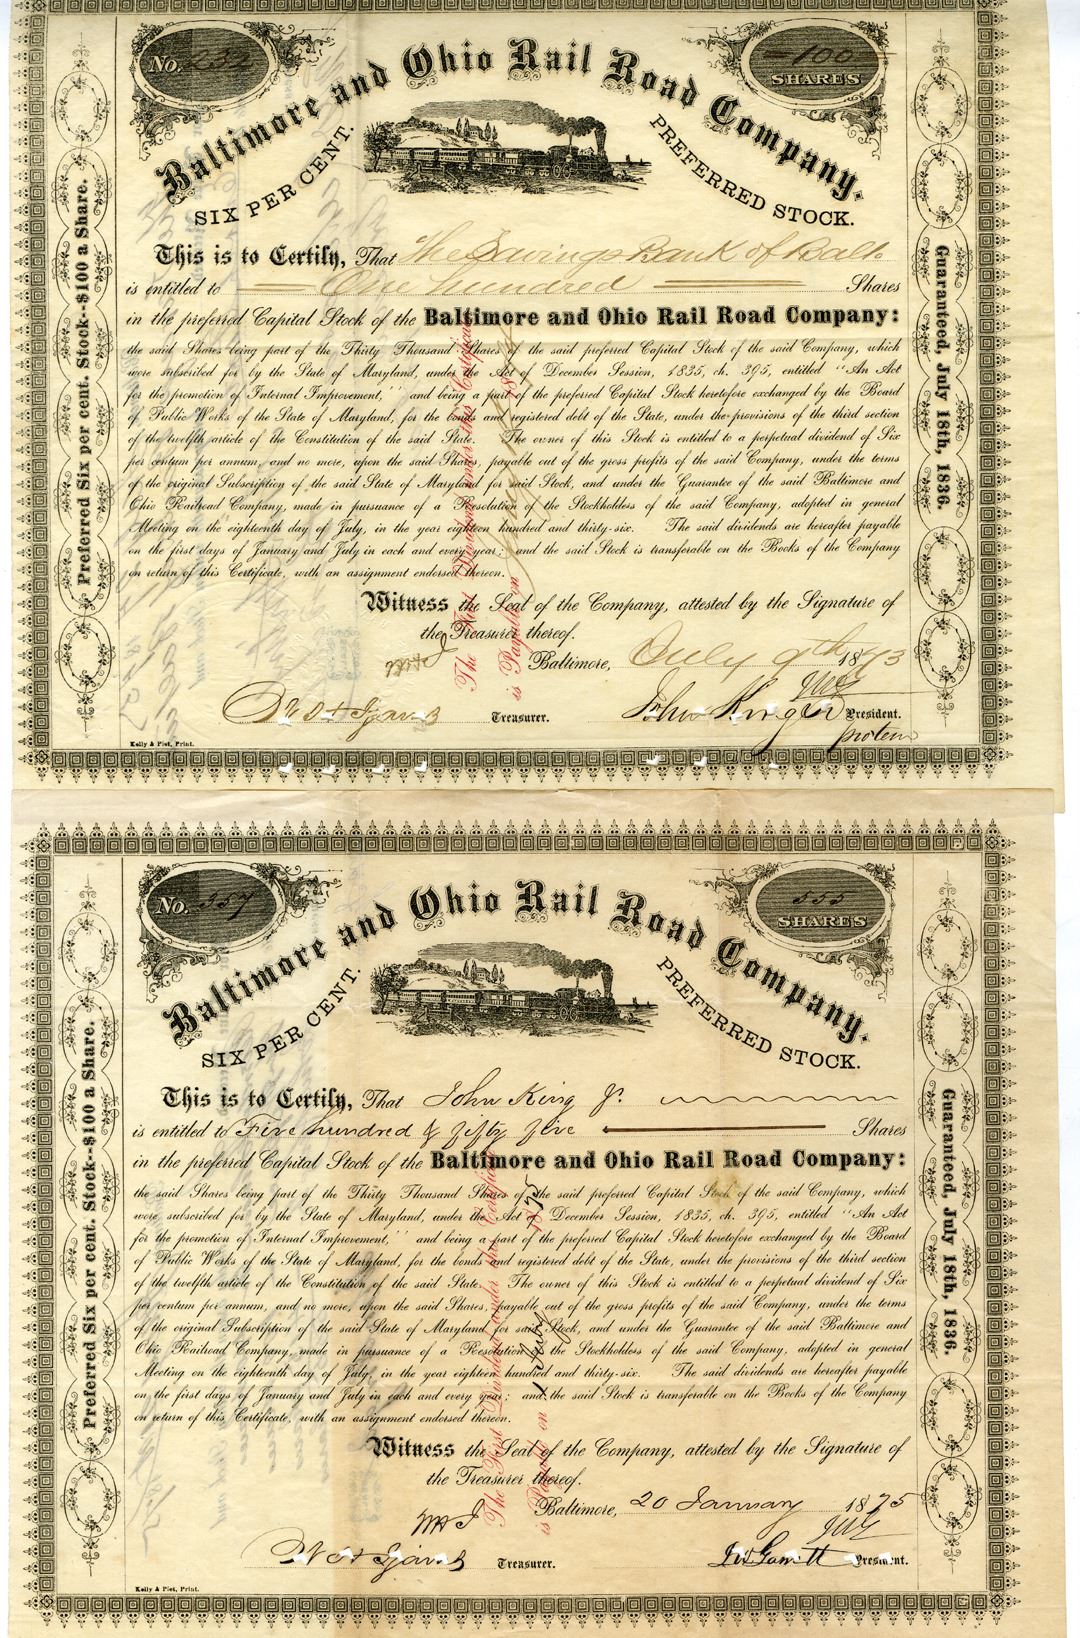 No. 232
100
SHARES
Baltimore and Ohio Rail Road Company.
SIX PER CENT.
PREFERRED STOCK.
This is to Certify, That The Savings Bank of Balt.
is entitled to One hundred Shares
in the preferred Capital Stock of the Baltimore and Ohio Rail Road Company:
the said Shares being part of the Thirty Thousand Shares of the said preferred Capital Stock of the said Company, which
were subscribed for by the State of Maryland, under the Act of December Session, 1835, ch. 395, entitled "An Act
for the promotion of Internal Improvement," and being a part of the preferred Capital Stock heretofore exchanged by the Board
of Public Works of the State of Maryland, for the bonds and registered debt of the State, under the provisions of the third section
of the twelfth article of the Constitution of the said State. The owner of this Stock is entitled to a perpetual dividend of Six
per centum per annum, and no more, upon the said Shares, payable out of the gross profits of the said Company, under the terms
of the original Subscription of the said State of Maryland for said Stock, and under the Guarantee of the said Baltimore and
Ohio Railroad Company, made in pursuance of a Resolution of the Stockholders of the said Company, adopted in general
Meeting on the eighteenth day of July, in the year eighteen hundred and thirty-six. The said dividends are hereafter payable
on the first days of January and July in each and every year; and the said Stock is transferable on the Books of the Company
on return of this Certificate, with an assignment endorsed thereon.
Witness the Seal of the Company, attested by the Signature of
the Treasurer thereof.
Baltimore, July 9th 1873
Treasurer. John King Jr President.
protem
Kelly & Piet, Print.
Preferred Six per cent. Stock--$100 a Share.
Guaranteed, July 18th, 1836.
The First Dividend under this Certificate
is Payable on
No. 557
555
SHARES
Baltimore and Ohio Rail Road Company.
SIX PER CENT.
PREFERRED STOCK.
This is to Certify, That John King Jr.
is entitled to Five hundred & fifty five Shares
in the preferred Capital Stock of the Baltimore and Ohio Rail Road Company:
the said Shares being part of the Thirty Thousand Shares of the said preferred Capital Stock of the said Company, which
were subscribed for by the State of Maryland, under the Act of December Session, 1835, ch. 395, entitled "An Act
for the promotion of Internal Improvement," and being a part of the preferred Capital Stock heretofore exchanged by the Board
of Public Works of the State of Maryland, for the bonds and registered debt of the State, under the provisions of the third section
of the twelfth article of the Constitution of the said State. The owner of this Stock is entitled to a perpetual dividend of Six
per centum per annum, and no more, upon the said Shares, payable out of the gross profits of the said Company, under the terms
of the original Subscription of the said State of Maryland for said Stock, and under the Guarantee of the said Baltimore and
Ohio Railroad Company, made in pursuance of a Resolution of the Stockholders of the said Company, adopted in general
Meeting on the eighteenth day of July, in the year eighteen hundred and thirty-six. The said dividends are hereafter payable
on the first days of January and July in each and every year; and the said Stock is transferable on the Books of the Company
on return of this Certificate, with an assignment endorsed thereon.
Witness the Seal of the Company, attested by the Signature of
the Treasurer thereof.
Baltimore, 20 January 1875
Treasurer. JW Garrett President.
Kelly & Piet, Print.
Preferred Six per cent. Stock--$100 a Share.
Guaranteed, July 18th, 1836.
The First Dividend under this Certificate
is Payable on 1 July 1875